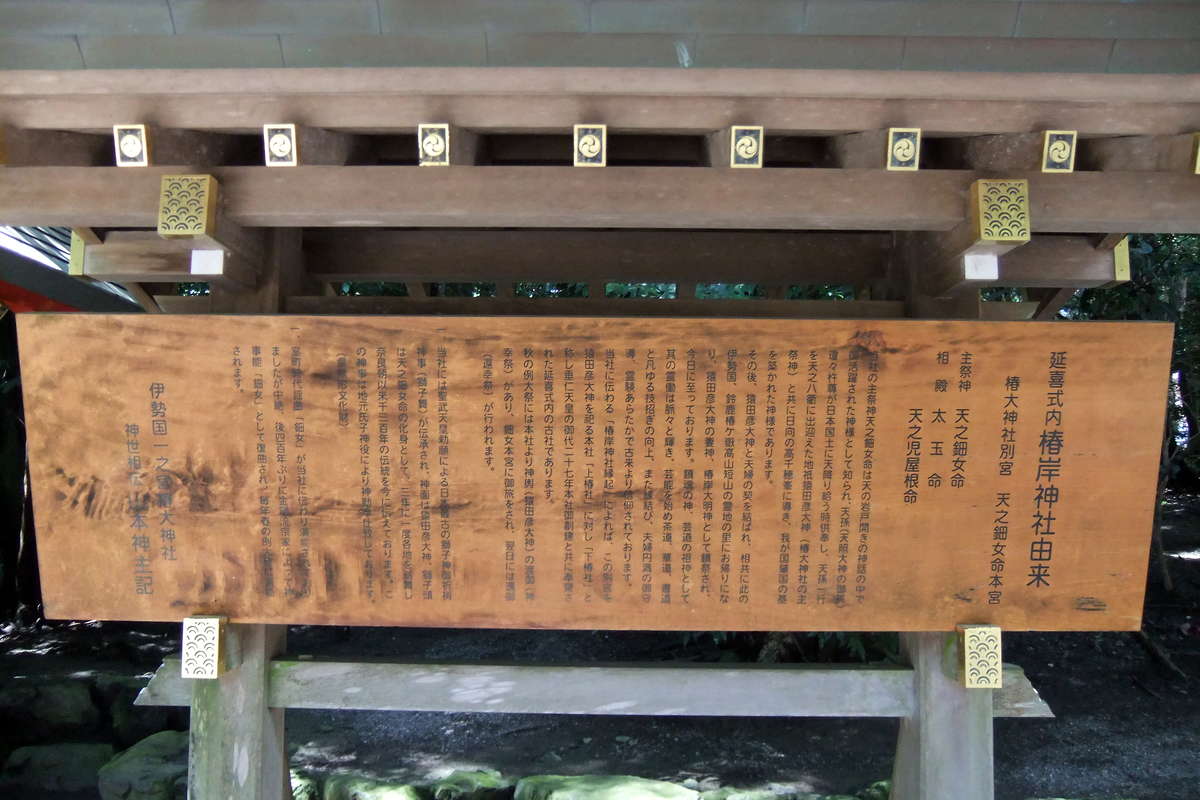 延喜式内 椿岸神社由来
椿大神社別宮 天之鈿女命本宮
主祭神 天之鈿女命
相殿 太玉命
天之児屋根命
当社の主祭神天之鈿女命は天の岩戸開きの神話の中で
御活躍された神様として知られ、天孫(天照大神の御孫)
瓊々杵尊が日本国土に天降り給う時供奉し、天孫一行
を天之八衢に出迎えた地祇猿田彦大神(椿大神社の主
祭神)と共に日向の高千穂峯に導き、我が国肇国の基
を築かれた神様であります。
その後、猿田彦大神と夫婦の契を結ばれ、相共に此の
伊勢国、鈴鹿椿ケ嶽高山短山の霊地の里にお帰りにな
り、猿田彦大神の妻神、椿岸大明神として鎮祭され、
今日に至っております。鎮魂の神、芸道の祖神として
其の霊働は脈々と輝き、芸能を始め茶道、華道、書道
と凡ゆる技招ぎの向上、また縁結び、夫婦円満の御守
導、霊験あらたかで古来より信仰されております。
当社に伝わる「椿岸神社縁起」によれば、この別宮を
猿田彦大神を祀る本社「上椿社」に対し「下椿社」と
称し垂仁天皇の御代二十七年本社御創建と共に奉斎さ
れた延喜式内の古社であります。
秋の例大祭には本社より神輿(猿田彦大神)の渡御(神
幸祭)があり、鈿女本宮に御旅をされ、翌日には還御
(還幸祭)が行われます。
一、当社には聖武天皇勅願による日本最古の獅子神御祈祷
神事(獅子舞)が伝承され、神面は猿田彦大神、獅子頭
は天之鈿女命の化身として、三年に一度各地を巡舞し
奈良朝以来千三百年の伝統を今に伝えております。こ
の神事は地元氏子神役により神勤奉仕致しております。
(無形文化財)
一、室町時代謡曲「鈿女」が当社に伝わり演能されており
ましたが中絶、後四百年ぶりに金剛流宗家によって神
事能「鈿女」として復曲され、毎年春の例大祭に奉納
されます。
伊勢国一之宮椿大神社